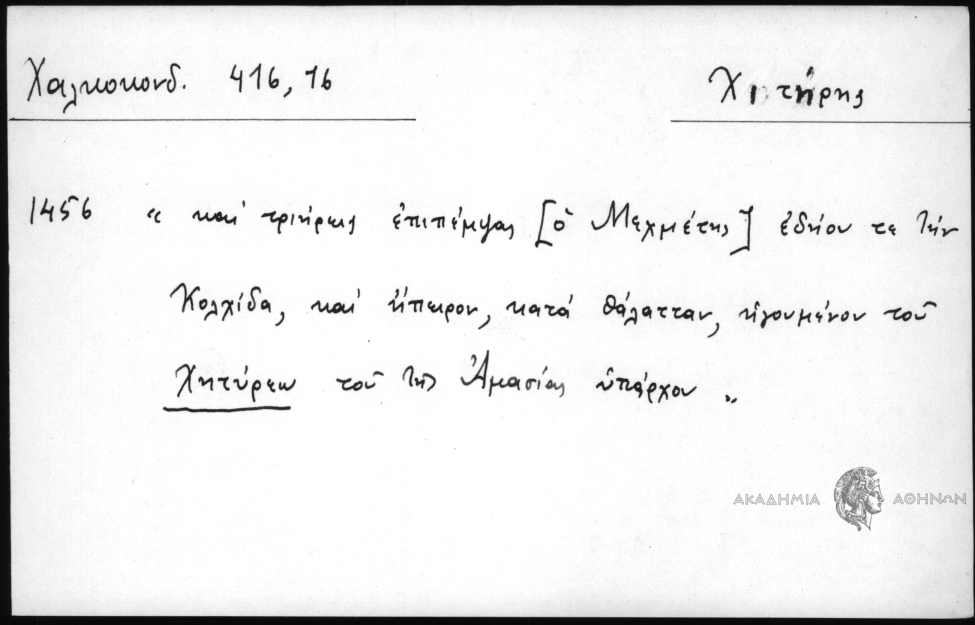 Χαλκοκονδ. 416, 16
Χιτήρης
1456 « καὶ τριήρεις ἐπιπέμψας [ὁ Μεχμέτης] ἐδῄου τε τὴν
Κολχίδα, καὶ ἤπειρον, κατὰ θάλατταν, ἡγουμένου τοῦ
Χητύρεω τοῦ τῆς Ἀμασίας ὑπάρχου »
ΑΚΑΔΗΜΙΑ ΑΘΗΝΩΝ